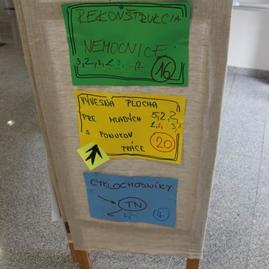 REKONŠTRUKCIA
NEMOCNICE
3,2,3,2
16
VÝVESNÁ PLOCHA
PRE MLADÝCH 5,2,2
S PONUKOU
PRÁCE
20
CYKLOCHODNÍKY
TN
4